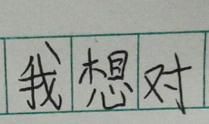 我想对